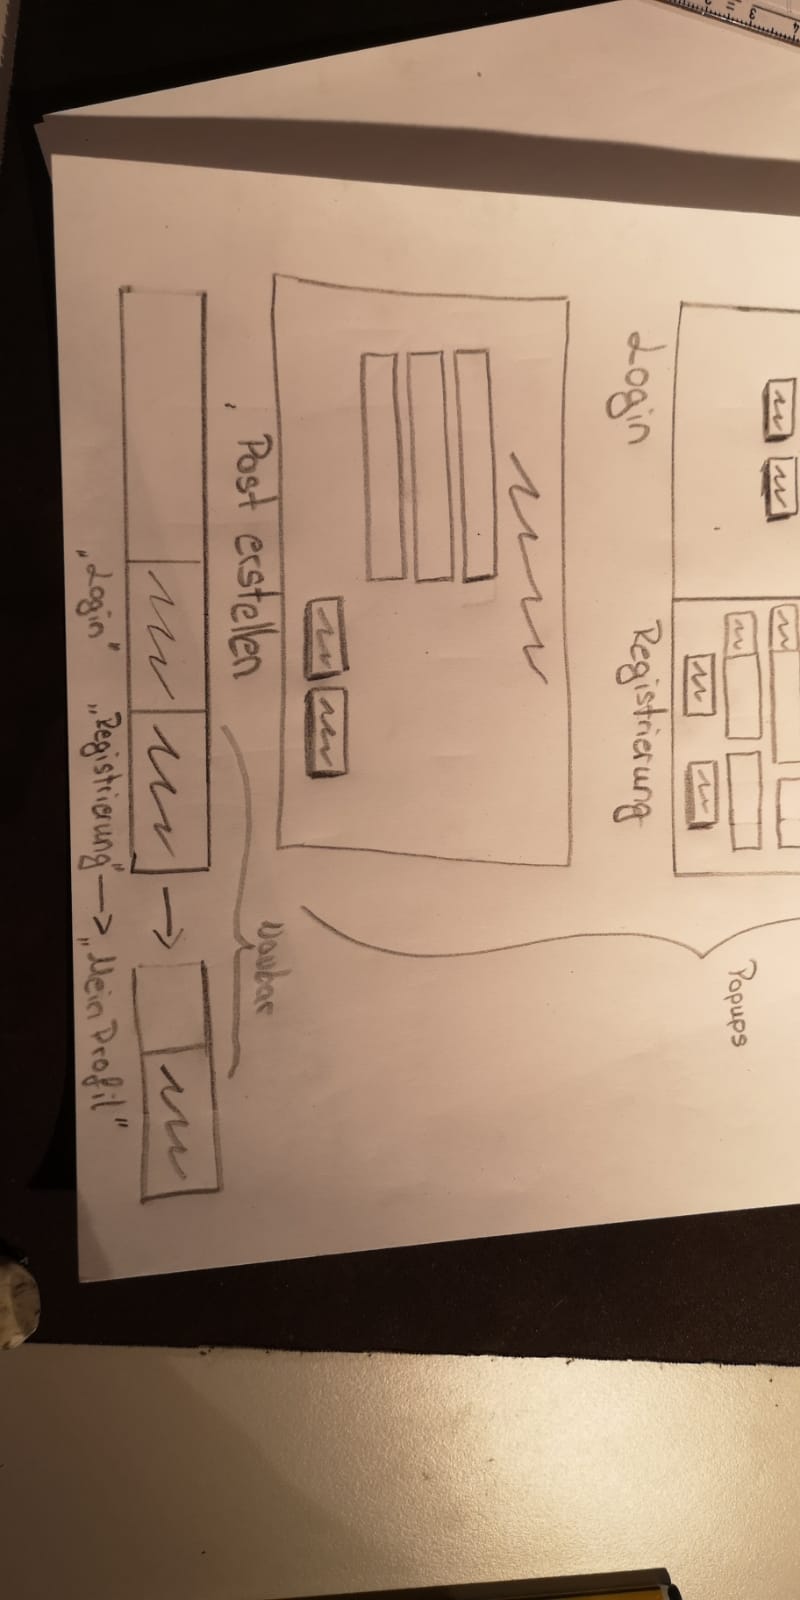 Popups
Login
Registrierung
Post erstellen
Navbar
„Login"
„Registrierung" → „Mein Profil"